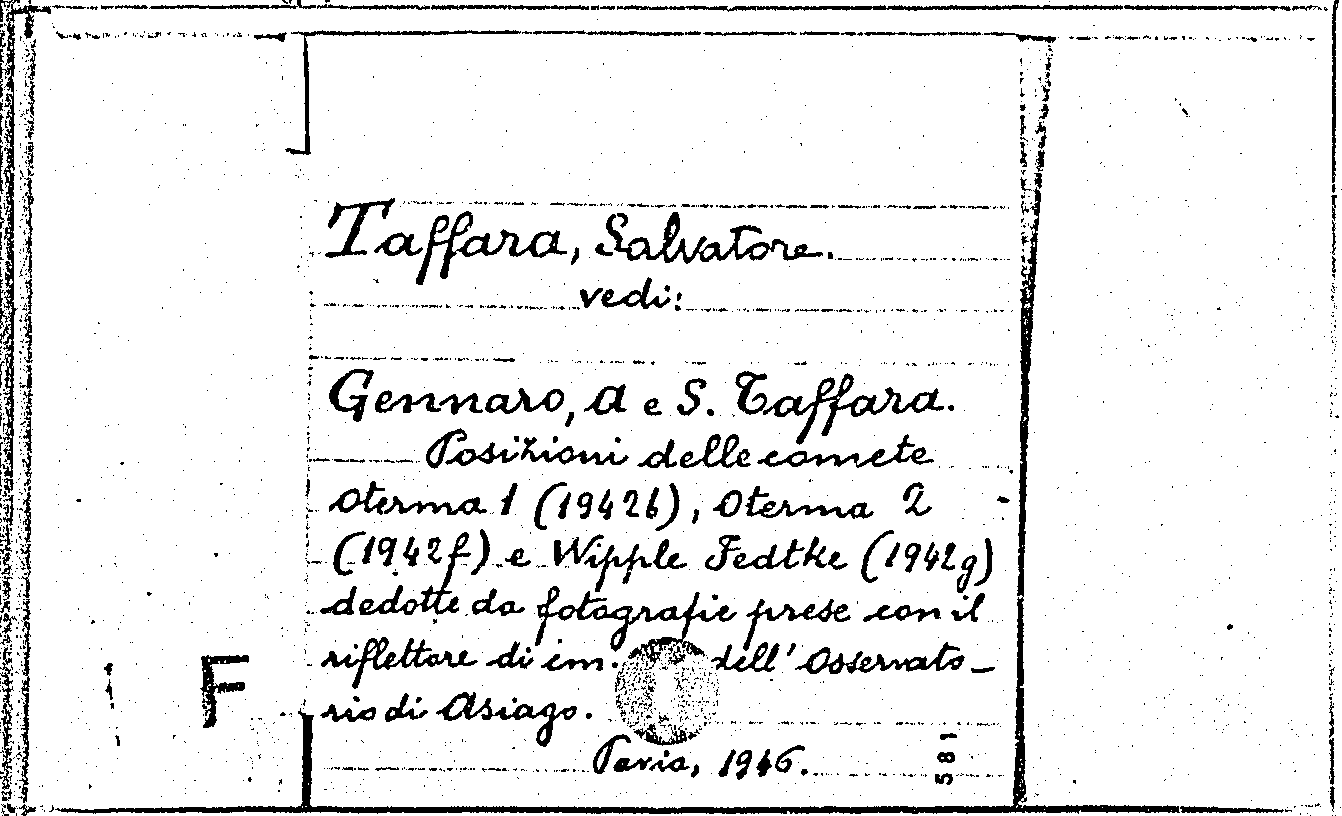 Taffara, Salvatore.
vedi:
Gennaro, A e S. Taffara.
Posizioni delle comete
Oterma 1 (1942b), Oterma 2
(1942f) e Wipple Fedtke (1942g)
dedotte da fotografie prese con il
riflettore di cm. dell' Osservato-
rio di Asiago.
Pavia, 1946.
F
581